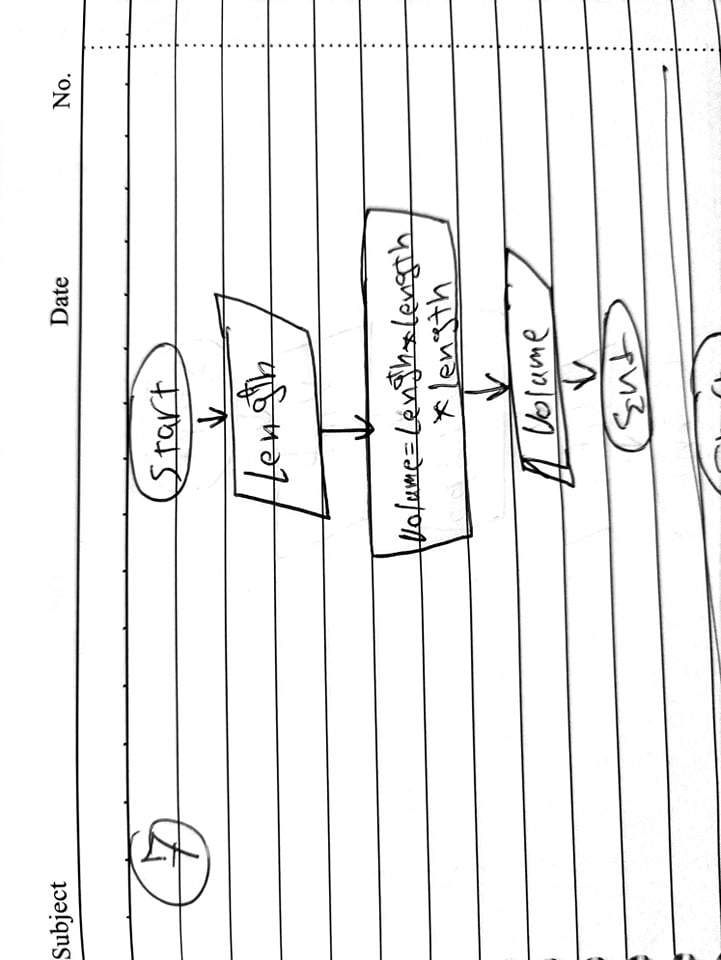 Subject Date No.
7
Start
Length
Volume=Length*Length
* Length
Volume
End